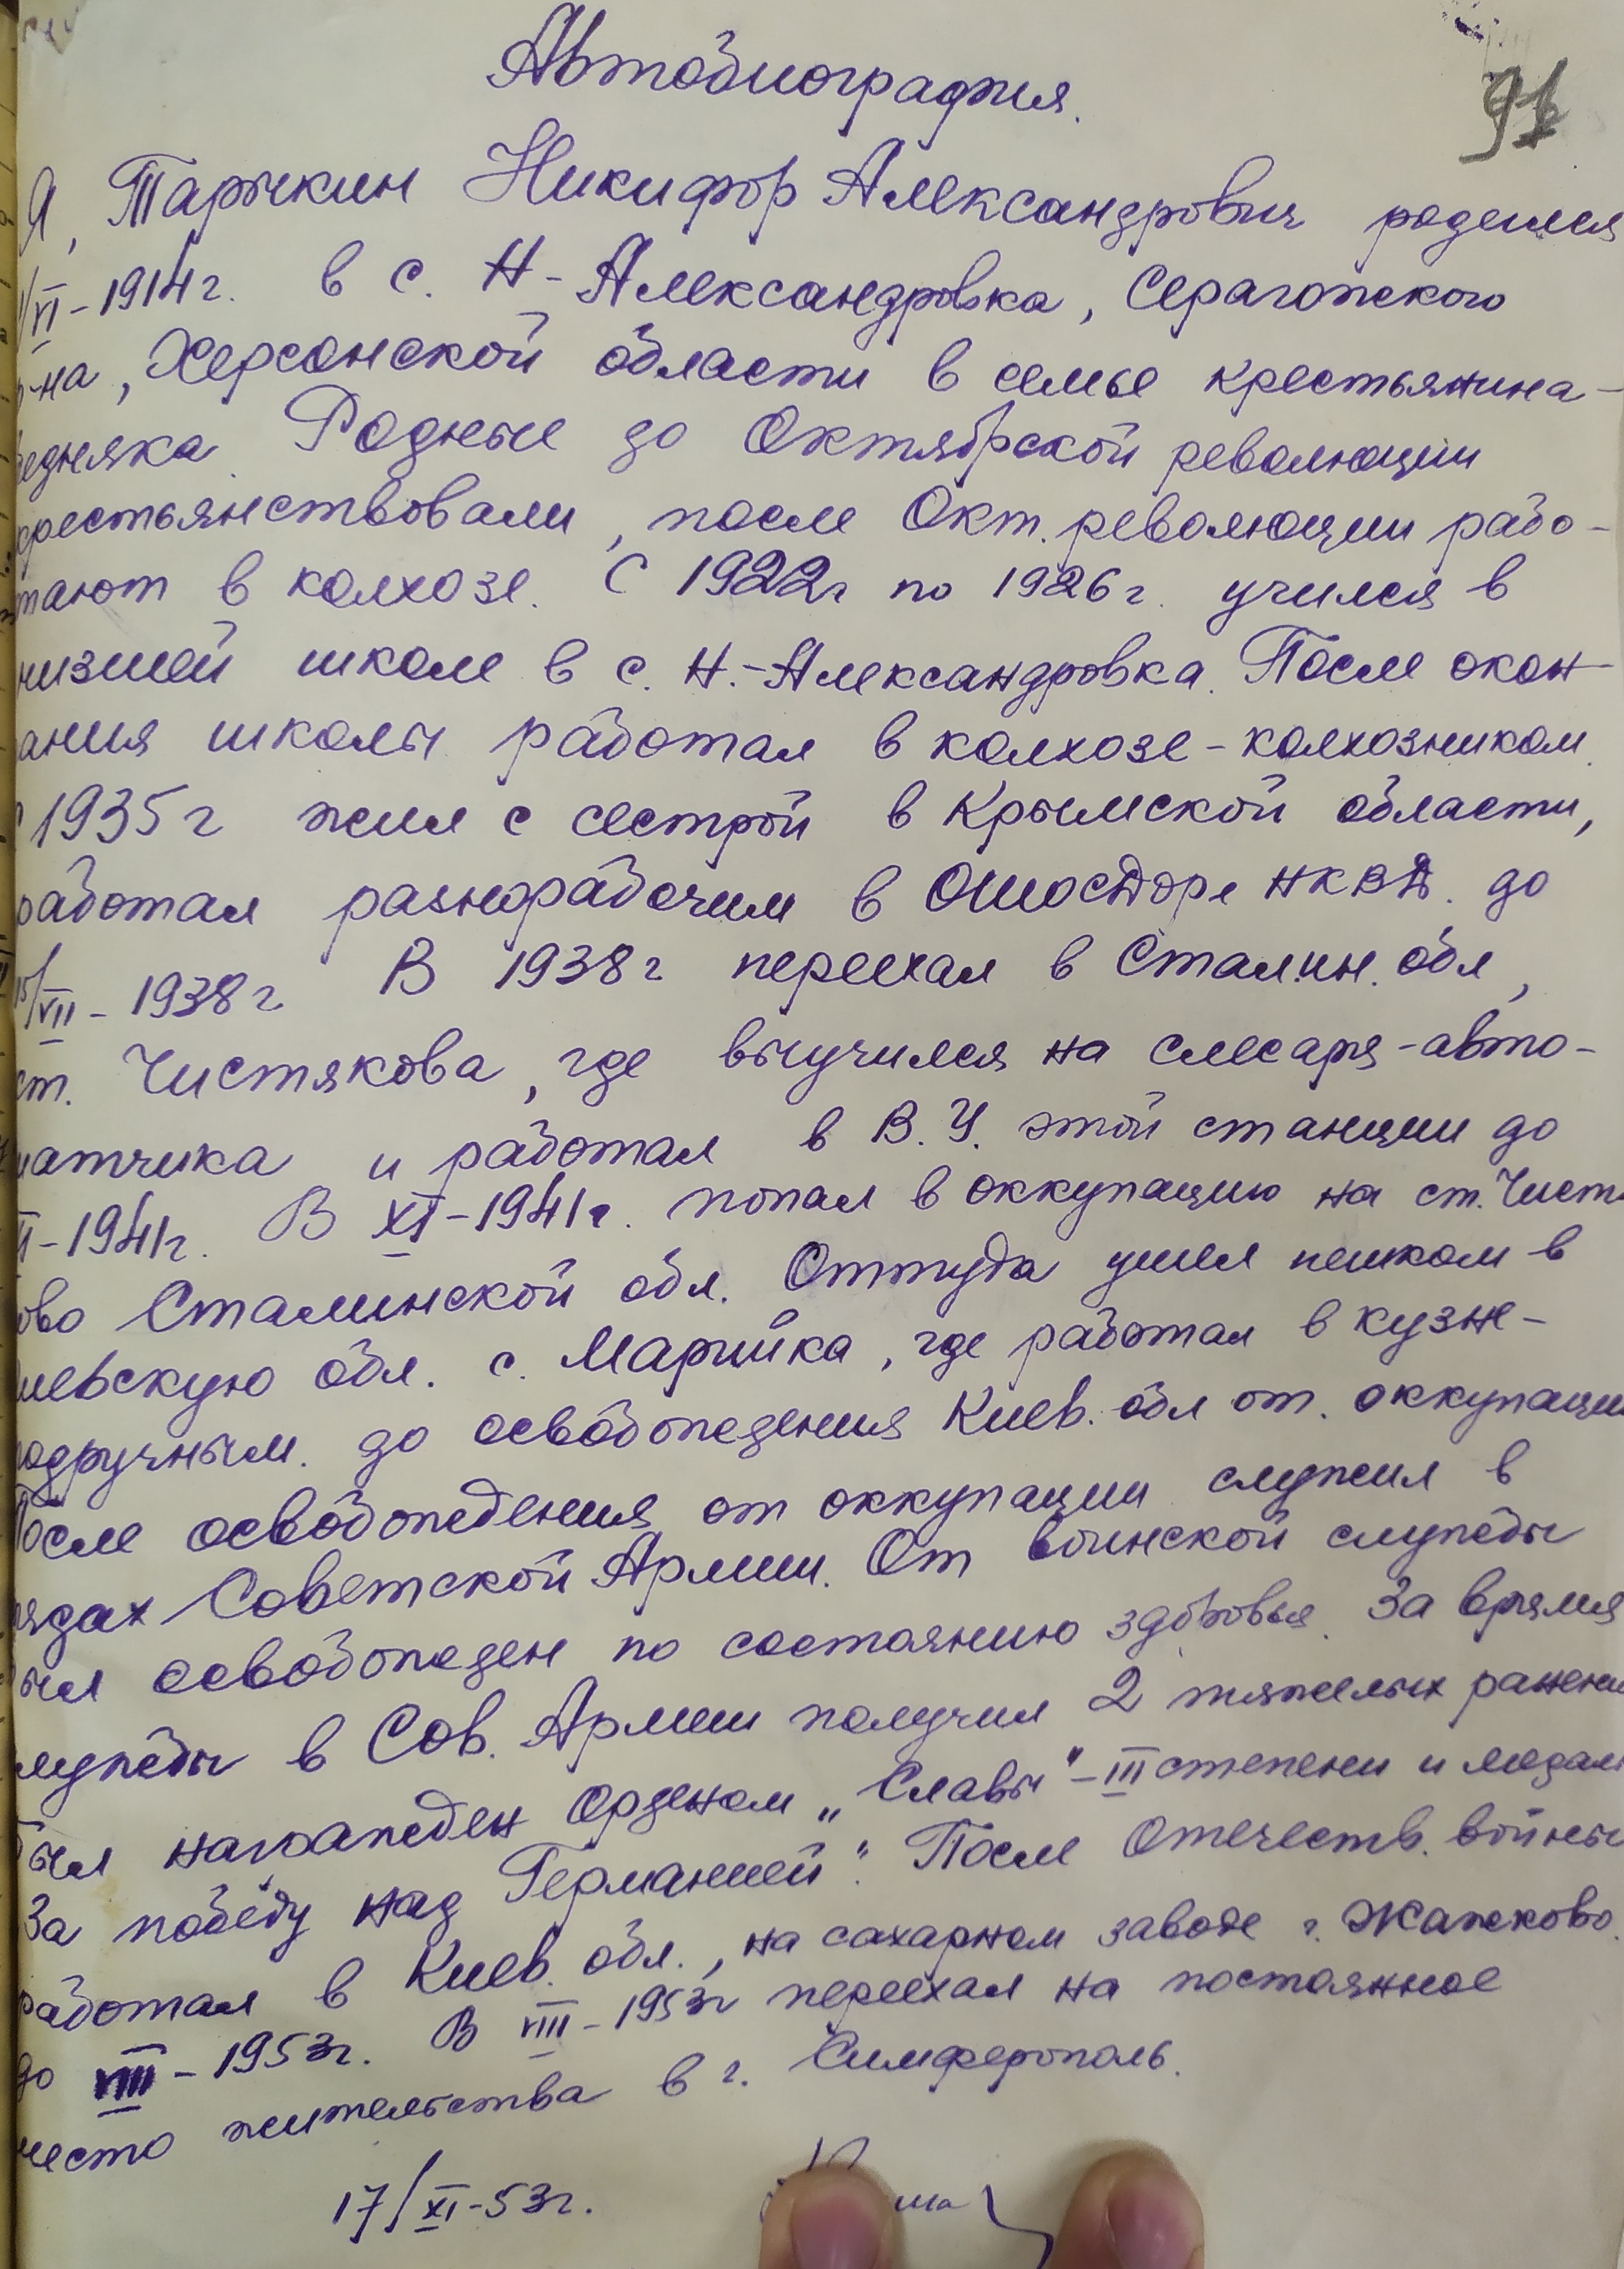 Автобиография.
91
Я, Тарычкин Никифор Александрович родился
/VI-1914г. в с. Н-Александровка, Серагожского
р-на, Херсонской области в семье крестьянина-
бедняка. Родные до Октябрской революции
крестьянствовали, после Окт. революции рабо-
тают в колхозе. С 1922г по 1926г. учился в
низшей школе в с. Н.-Александровка. После окон-
ания школы работал в колхозе-колхозником.
С 1935г жил с сестрой в Крымской области,
работал разнорабочим в ОШОСДоре НКВД. до
15/VII-1938г В 1938г переехал в Сталин. обл,
ст. Чистякова, где выучился на слесаря-авто-
матчика и работал в В.У. этой станции до
II-1941г. В XI-1941г. попал в оккупацию на ст. Чистя
ово Сталинской обл. Оттуда ушел пешком в
иевскую обл. с. Марийка, где работал в кузне-
подручным. до освобождения Киев. обл от. оккупации
После освобождения от оккупации служил в
рядах Советской Армии. От воинской службы
был освобожден по состоянию здоровья. За время
службы в Сов. Армии получил 2 тяжелых ранени
был награжден орденом „Славы"-III степени и медал
За победу над Германией". После Отечеств. войны
работал в Киев. обл., на сахарном заводе г. Жажково.
до VIII-1953г. В VIII-1953г переехал на постоянное
место жительства в г. Симферополь.
17/XI-53г.